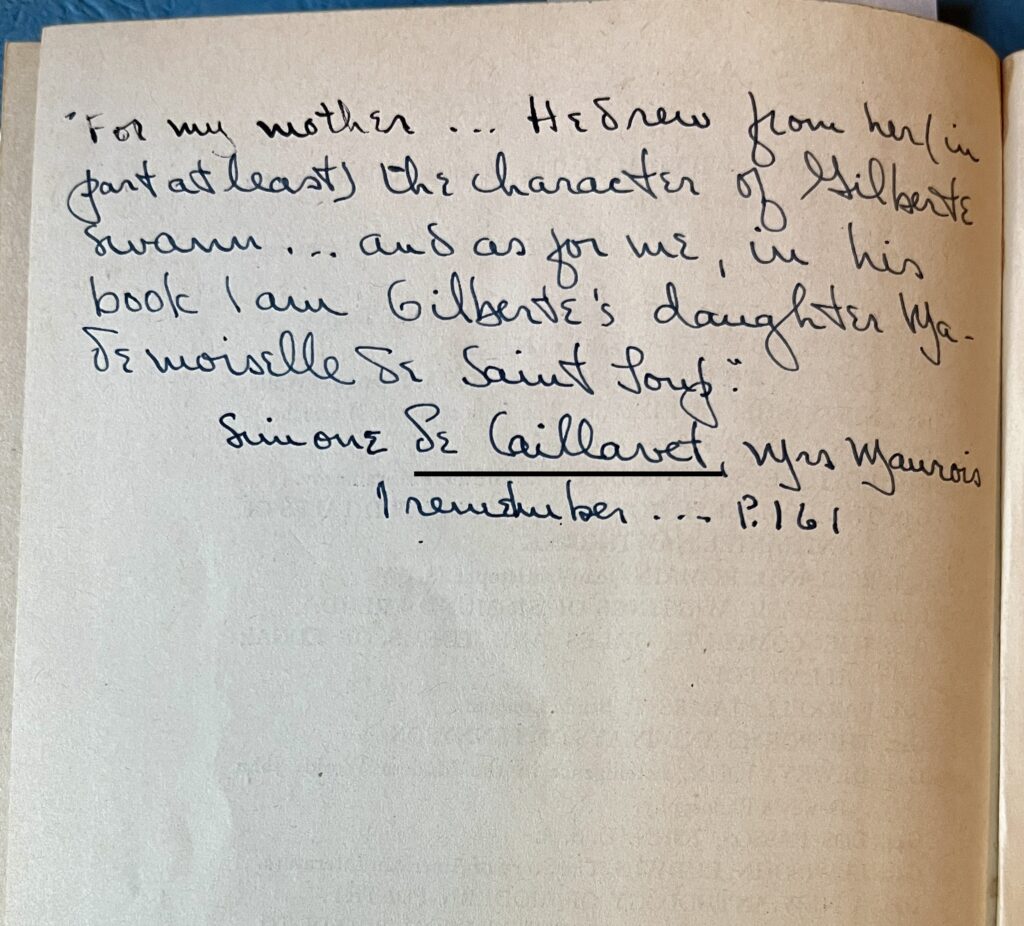 "For my mother ... He drew from her (in
part at least) the character of Gilberte
Swann ... and as for me, in his
book I am Gilberte's daughter Ma-
demoiselle de Saint Loup."
Simone de Caillavet, Mrs Maurois
I remember ... P. 161